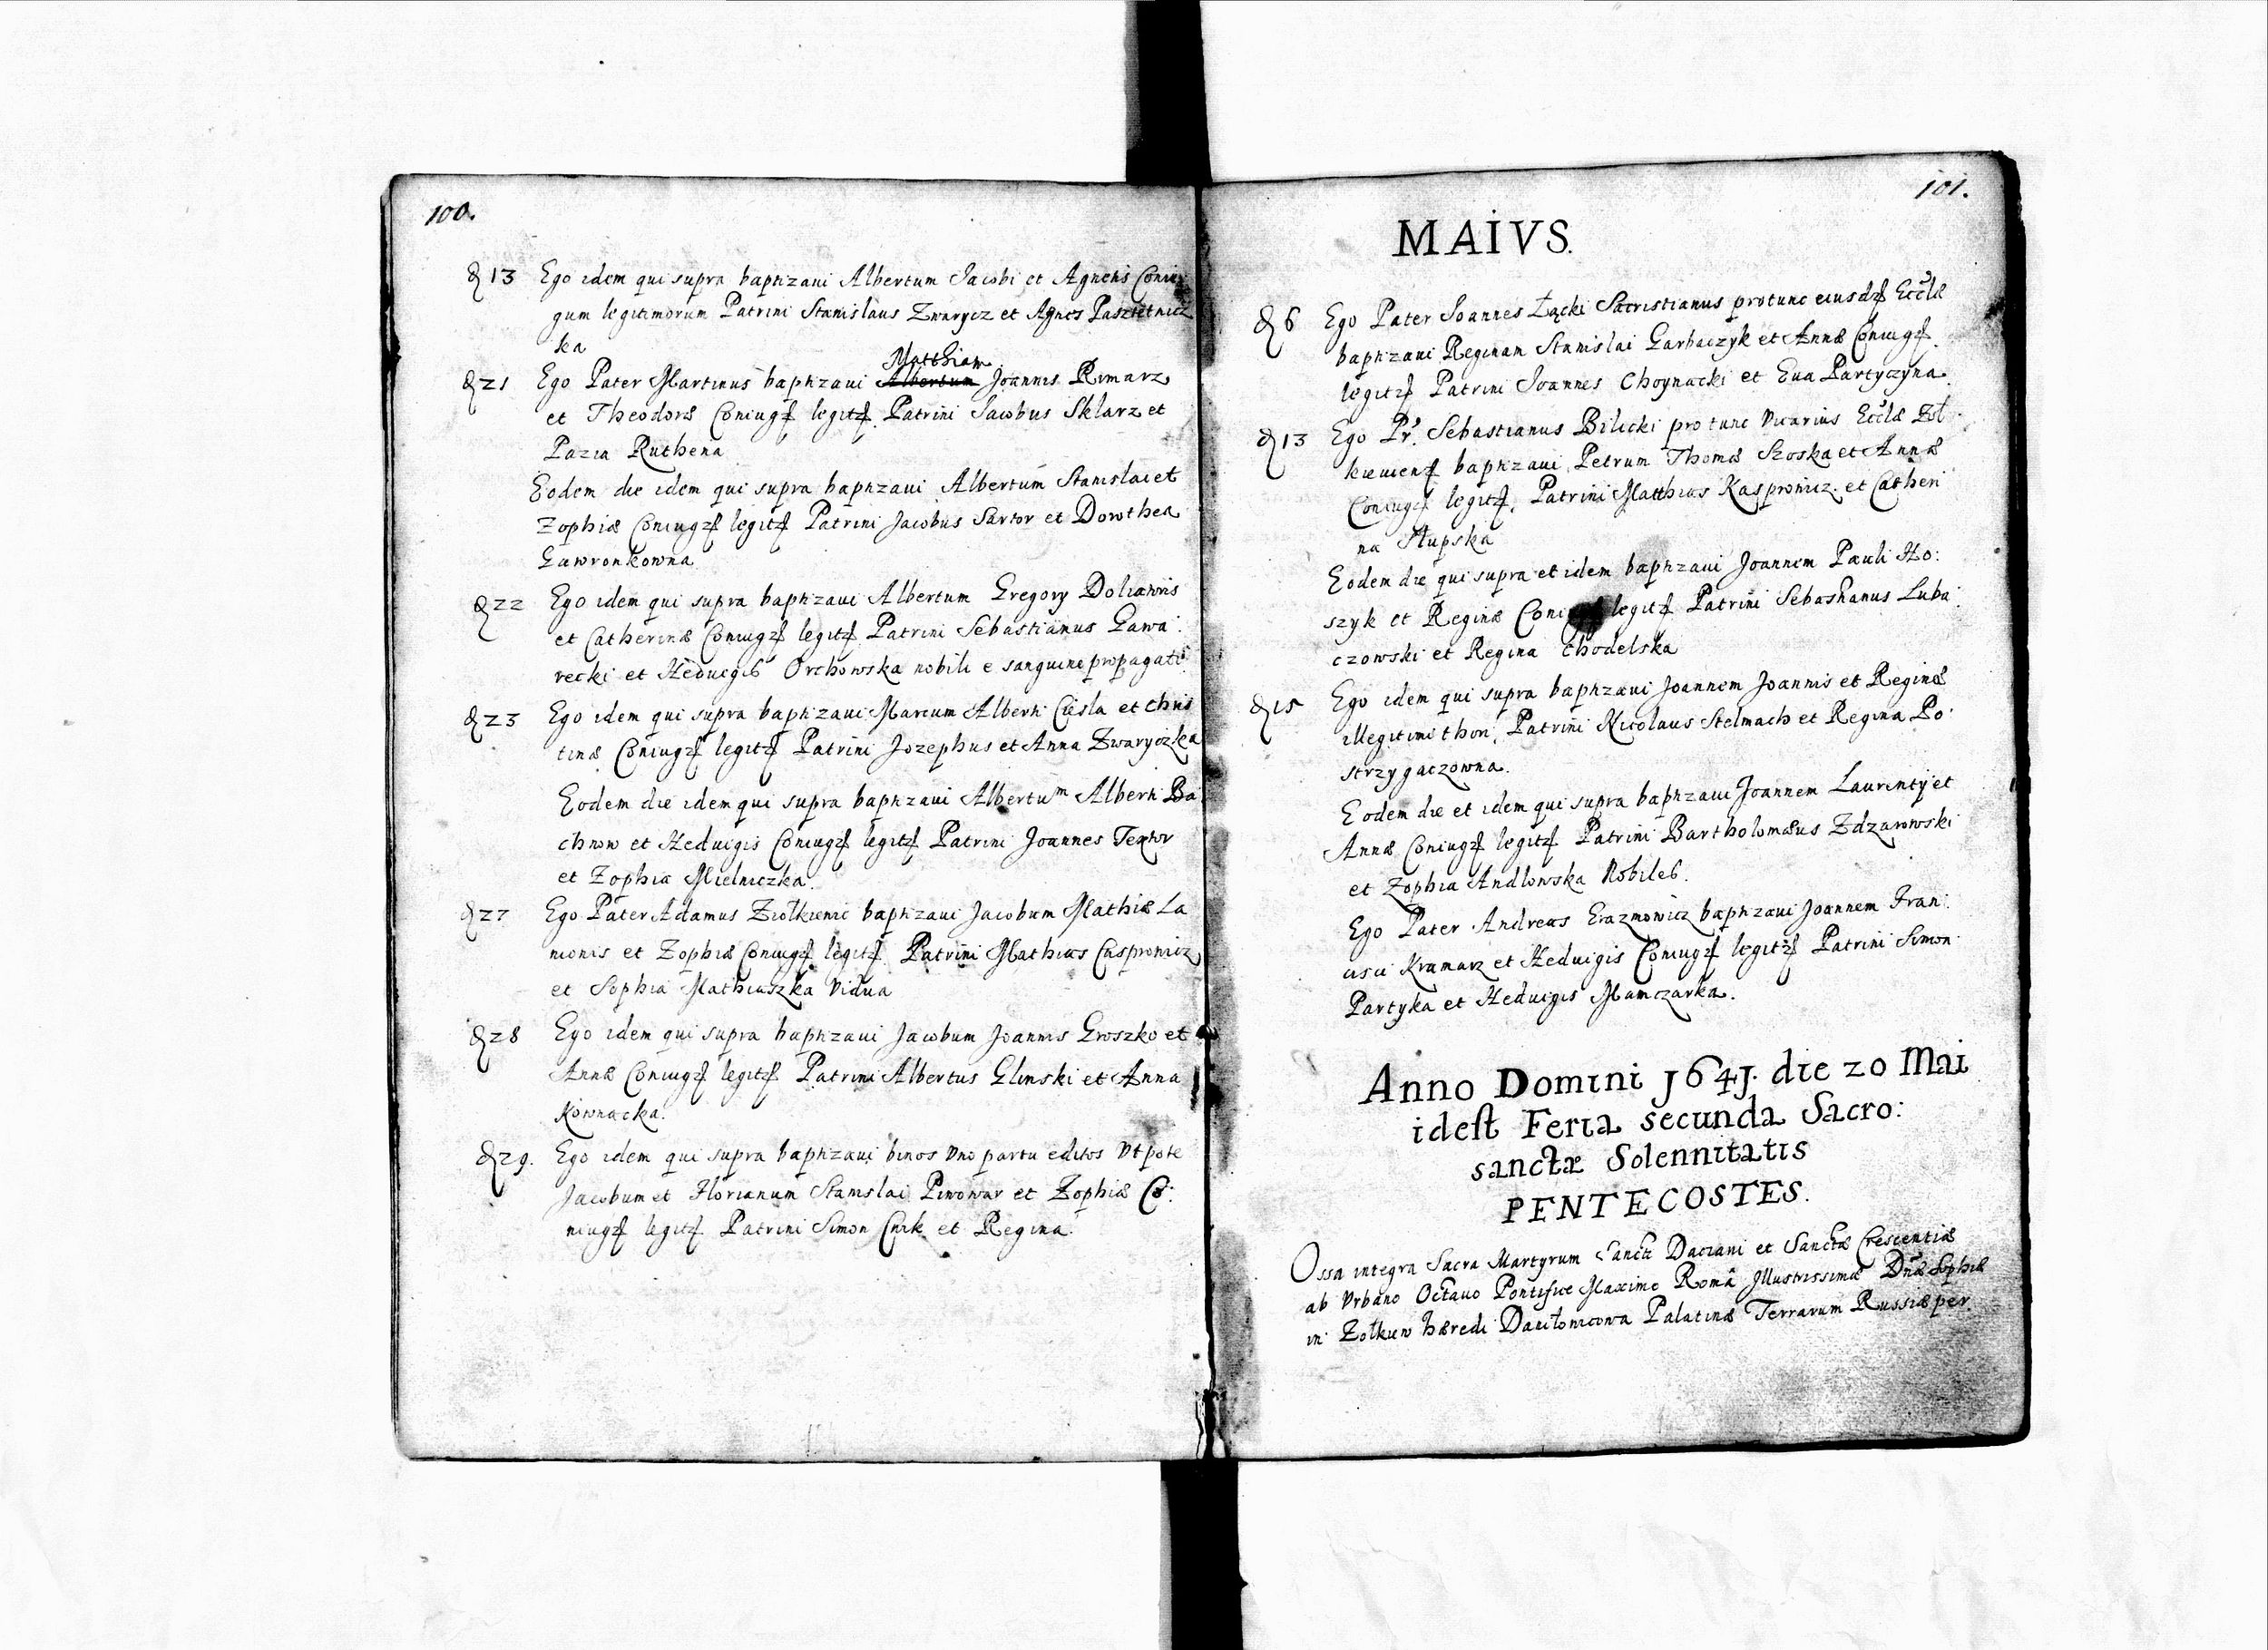 100.
D 13 Ego idem qui supra baptizaui Albertum Jacobi et Agnetis Coniu
gum legitimorum Patrini Stanislaus Zwarycz et Agnes Pasztetnicz
ka
D 21 Ego Pater Martinus baptizaui Matthiam Albertum Joannis Rimarz
et Theodoræ Coniugũ legitũ. Patrini Jacobus Sklarz et
Pazia Ruthena
Eodem die idem qui supra baptizaui Albertum Stanislai et
Zophiæ Coniugũ legitũ Patrini Jacobus Sartor et Dorothea
Gawronkowna
D 22 Ego idem qui supra baptizaui Albertum Gregory Doliawis
et Catherinæ Coniugũ legitũ Patrini Sebastianus Gawa:
recki et Heduigis Orchowska nobili e sanguine propagati
D 23 Ego idem qui supra baptizaui Marcum Alberti Ciesla et Chris
tinæ Coniugũ legitũ Patrini Jozephus et Anna Zwaryczka
Eodem die idem qui supra baptizaui Albertum Alberti Ba
chnow et Heduigis Coniugũ legitũ Patrini Joannes Textor
et Zophia Mielniczka.
D 27 Ego Pater Adamus Ziolkiewic baptizaui Jacobum Mathiæ La
monis et Zophiæ Coniugũ legitũ. Patrini Mathias Casprowicz
et Sophia Mathiaszka Vidua
D 28 Ego idem qui supra baptizaui Jacobum Joannis Groszko et
Annæ Coniugũ legitũ Patrini Albertus Glinski et Anna
Kownacka.
D 29. Ego idem qui supra baptizaui binos Vno partu editos Vtpote
Jacobum et Florianum Stanislai Piwowar et Zophiæ Co:
niugũ legitũ Patrini Simon Cnik et Regina.
101.
MAIVS.
D 6 Ego Pater Joannes Łącki Sacristianus protunc eiusdũ Eccłæ
baptizaui Reginam Stanislai Garbarczyk et Annæ Coniugũ.
legitũ Patrini Joannes Choynacki et Eua Partyczyna.
D 13 Ego Pr. Sebastianus Bilicki pro tunc Vicarius Eccłæ Zoł
kieuienũ baptizaui Petrum Thomæ Szoska et Annæ
Coniugũ legitũ, Patrini Matthias Kasprowicz. et Catheri
na Słupska
Eodem die qui supra et idem baptizaui Joannem Pauli Ho:
szyk et Reginæ legitũ Patrini Sebastianus Luba:
czowski et Regina Chodelska
D 15 Ego idem qui supra baptizaui Joannem Joannis et Reginæ
illegitimi thori, Patrini Nicolaus Stelmach et Regina Po:
strzygaczowna.
Eodem die et idem qui supra baptizaui Joannem Laurentÿ et
Annæ Coniugũ legitũ Patrini Bartholomæus Zdzarowski
et Zophia Andlowska Nobiles.
Ego Pater Andreas Erazmowicz baptizaui Joannem Fran:
cisci Kramarz et Heduigis Coniugũ legitũ Patrini Simon
Partyka et Heduigis Mamczarka.
Anno Domini 1641. die 20 Mai
idest Feria secunda Sacro:
sanctæ Solennitatis
PENTECOSTES.
Ossa integra Sacra Martyrum Sancti Daciani et Sanctæ Crescentiæ
ab Vrbano Octauo Pontifice Maximo Romã Illustrissimæ Dñæ Sophiæ
in Zołkiew hæredi Daniłowicowa Palatinæ Terrarum Russiæ per